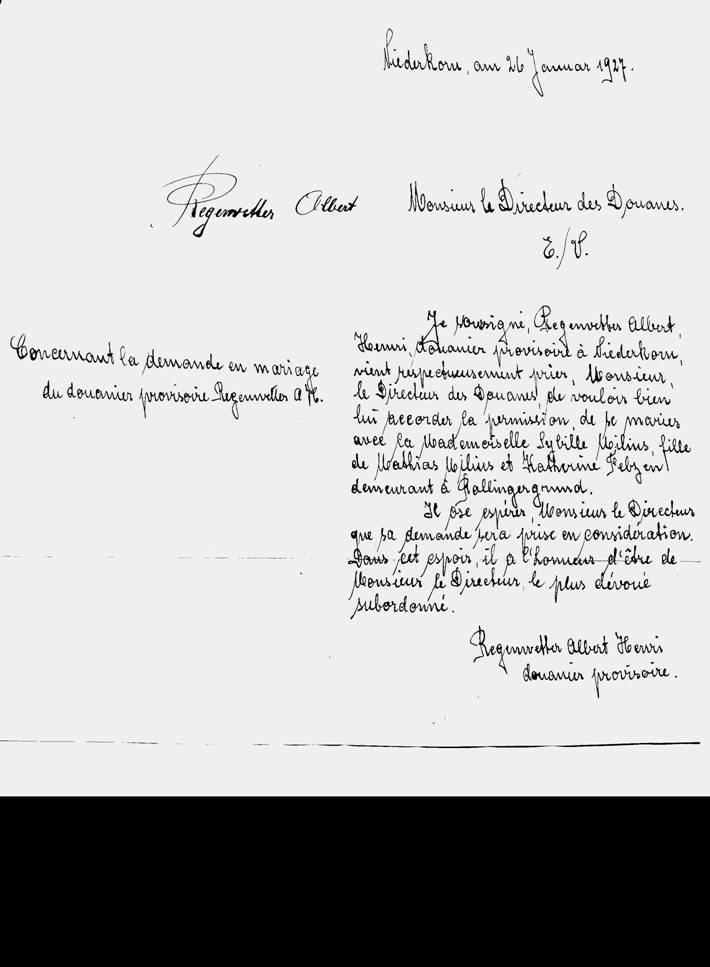 Niederkorn, am 26 Januar 1927.
Regenwetter Albert
Monsieur le Directeur des Douanes.
E./V.
Concernant la demande en mariage
du douanier provisoire Regenwetter A H.
Je soussigné, Regenwetter Albert,
Henri, douanier provisoire à Niederkorn,
vient respectueusement prier, Monsieur,
le Directeur des Douanes, de vouloir bien
lui accorder la permission, de se marier
avec la Mademoiselle Sybille Milius, fille
de Mathias Milius et Katherine
demeurant à Rollingergrund.
Il ose espérer, Monsieur le Directeur
que sa demande sera prise en considération.
Dans cet espoir, il a l'honneur d'être de
Monsieur le Directeur, le plus dévoué
subordonné.
Regenwetter Albert Henri
douanier provisoire.